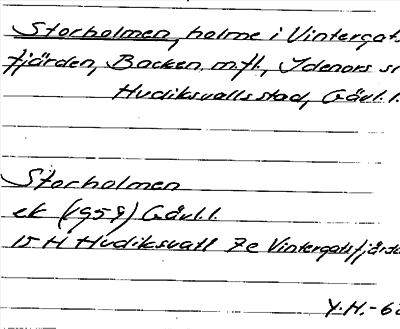 Storholmen, holme i Vintergats
fjärden, Backen m.fl., Idenors
Hudiksvalls stad, Gävl.l.
Storholmen
ek (1959) Gävl.l.
15 H Hudiksvall 7e Vintergatsfjärd
Y.H.-62